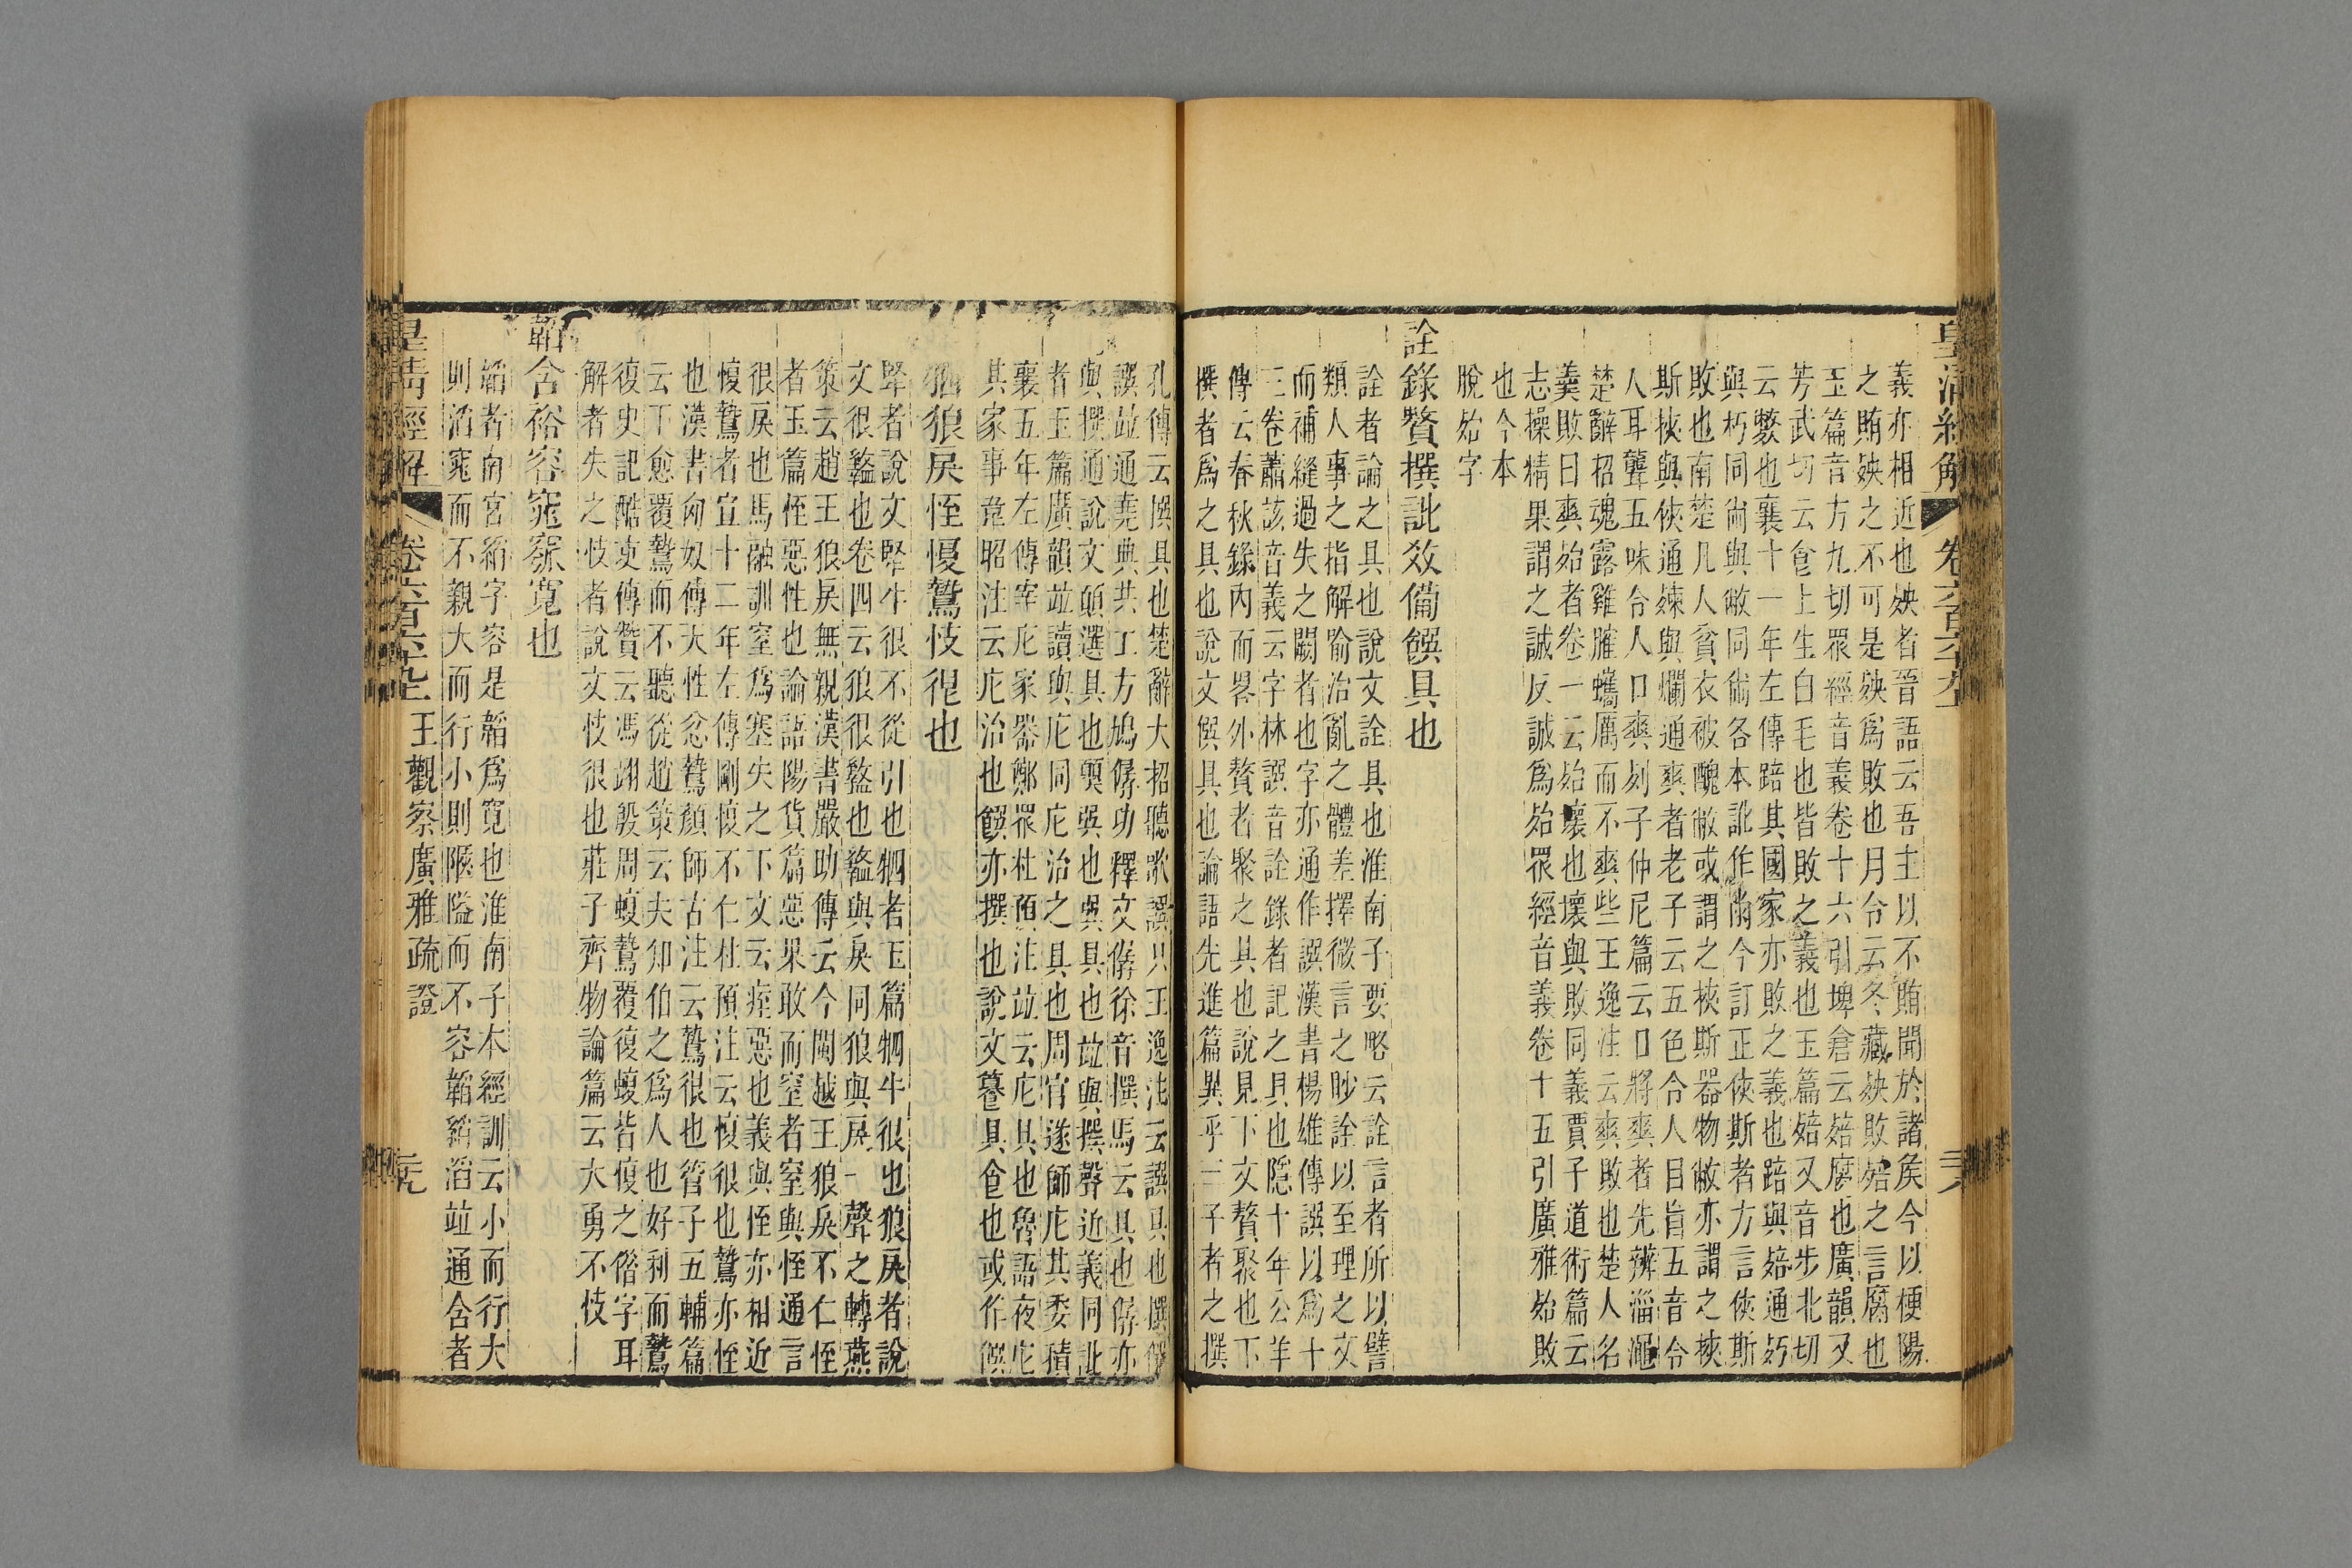 皇清經解 卷六百六十九
義亦相近也殃者晉語云吾主以不賄聞於諸矦今以梗陽
之賄殃之不可是殃爲敗也月令云冬藏殃敗㱙之言腐也
玉篇音方九切眾經音義卷十六引埤倉云㱙腐也廣韻又
芳武切云食上生白毛也皆敗之義也玉篇㱙又音步北切
云斃也襄十一年左傳踣其國家亦敗之義也踣與㱙通㱙
與朽同㡀與敝同㡀各本訛作㡀今訂正俠斯者方言俠斯
敗也南楚凡人貧衣被醜敝或謂之挾斯器物敝亦謂之挾斯
斯挾與俠通煉與爛通爽者老子云五色令人目盲五音令
人耳聾五味令人口爽列子仲尼篇云口將爽者先辨淄澠
楚辭招魂露雞臛蠵厲而不爽些王逸注云爽敗也楚人名
羹敗曰爽殆者卷一云殆壞也壞與敗同義賈子道術篇云
志操精果謂之誠反誠爲殆眾經音義卷十五引廣雅殆敗
也今本
脫殆字
詮錄贅撰訿效僃饌具也
詮者論之具也說文詮具也淮南子要略云詮言者所以譬
類人事之指解喻治亂之體差擇微言之眇詮以至理之文
而補縫過失之闕者也字亦通作譔漢書楊雄傳譔以爲十
三卷蕭該音義云字林譔音詮錄者記之具也隱十年公羊
傳云春秋錄內而畧外贅者聚之具也說見下文贅聚也下
撰者爲之具也說文僎具也論語先進篇異乎三子者之撰
孔傳云撰具也楚辭大招聽歌譔只王逸注云譔具也撰僎
譔竝通堯典共工方鳩僝功釋文僝徐音撰馬云具也僝亦
與撰通說文䪻選具也顨巽也巺具也竝與撰聲近義同訿
者玉篇廣韻竝讀與庀同庀治之具也周官遂師庀其委積
襄五年左傳宰庀家器鄭眾杜預注竝云庀具也魯語夜庀
其家事韋昭注云庀治也饌亦撰也說文籑具食也或作饌
㹛狼戾恎愎鷙忮很也
堅者說文堅牛很不從引也㹛者玉篇㹛牛很也狼戾者說
文很盭也卷四云狼很盭也盭與戾同狼與戾一聲之轉燕
策云趙王狼戾無親漢書嚴助傳云今閩越王狼戾不仁恎
者玉篇恎惡性也論語陽貨篇惡果敢而窒者窒與恎通言
很戾也馬融訓窒爲塞失之下文云痓惡也義與恎亦相近
愎鷙者宣十二年左傳剛愎不仁杜預注云愎很也鷙亦恎
也漢書匈奴傳天性忿鷙顏師古注云鷙很也管子五輔篇
云下愈覆鷙而不聽從趙策云夫知伯之爲人也好利而鷙
復史記酷吏傳贊云馮翊殷周蝮鷙覆復蝮皆愎之僭字耳
解者失之忮者說文忮很也莊子齊物論篇云大勇不忮
韜含裕容窕窾寬也
縚者南宮縚字容是韜爲寛也淮南子本經訓云小而行大
則滔窕而不親大而行小則陿隘而不容韜縚滔竝通含者
皇清經解 卷六百六十九 王觀察廣雅疏證